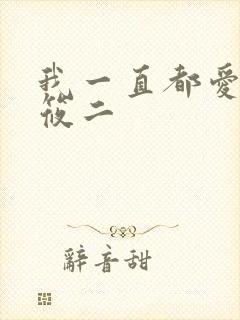 我一直都愛
筱二
辭音甜